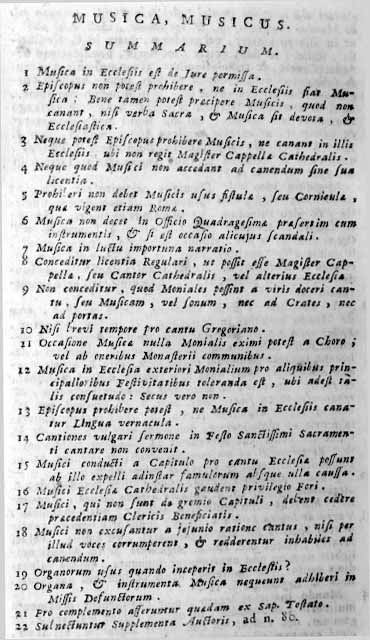 MUSICA, MUSICUS.
SUMMARIUM.
1 Musica in Ecclesiis est de Jure permissa.
2 Episcopus non potest prohibere, ne in Ecclesiis fiat Mu-
sica; Bene tamen potest præcipere Musicis, quod non
canant, nisi verba Sacra, & Musica sit devota, &
Ecclesiastica.
3 Neque potest Episcopus prohibere Musicis, ne canant in illis
Ecclesiis ubi non regit Magister Cappellæ Cathedralis.
4 Neque quod Musici non accedant ad canendum sine sua
licentia.
5 Prohiberi non debet Musicis usus fistulæ, seu Corniculæ,
quæ vigent etiam Romæ.
6 Musica non decet in Officio Quadragesimæ præsertim cum
instrumentis, & si est occasio alicujus scandali.
7 Musica in luctu importuna narratio.
8 Conceditur licentia Regulari, ut possit esse Magister Cap-
pellæ, seu Cantor Cathedralis, vel alterius Ecclesiæ
9 Non conceditur, quod Moniales possint a viris doceri can-
tu, seu Musicam, vel sonum, nec ad Crates, nec
ad portas.
10 Nisi brevi tempore pro cantu Gregoriano.
11 Occasione Musicæ nulla Monialis eximi potest a Choro;
vel ab oneribus Monasterii communibus.
12 Musica in Ecclesia exteriori Monialium pro aliquibus prin-
cipalioribus Festivitatibus toleranda est, ubi adest ta-
lis consuetudo: Secus vero non.
13 Episcopus prohibere potest, ne Musica in Ecclesiis cana-
tur Lingua vernacula.
14 Cantiones vulgari sermone in Festo Sanctissimi Sacramen-
ti cantare non convenit.
15 Musici conducti a Capitulo pro cantu Ecclesiæ possunt
ab illo expelli adinstar famulorum absque ulla caussa.
16 Musici Ecclesiæ Cathedralis gaudent privilegio Fori.
17 Musici, qui non sunt de gremio Capituli, debent cedere
præcedentiam Clericis Beneficiatis.
18 Musici non excusantur a jejunio ratione cantus, nisi per
illud voces corrumperent, & redderentur inhabiles ad
canendum.
19 Organorum usus quando inceperit in Ecclesiis?
20 Organa, & instrumenta Musica nequeunt adhiberi in
Missis Defunctorum.
21 Pro complemento afferuntur quædam ex Sap. Tostato.
22 Subnectuntur Supplementa Auctoris, ad n. 80.